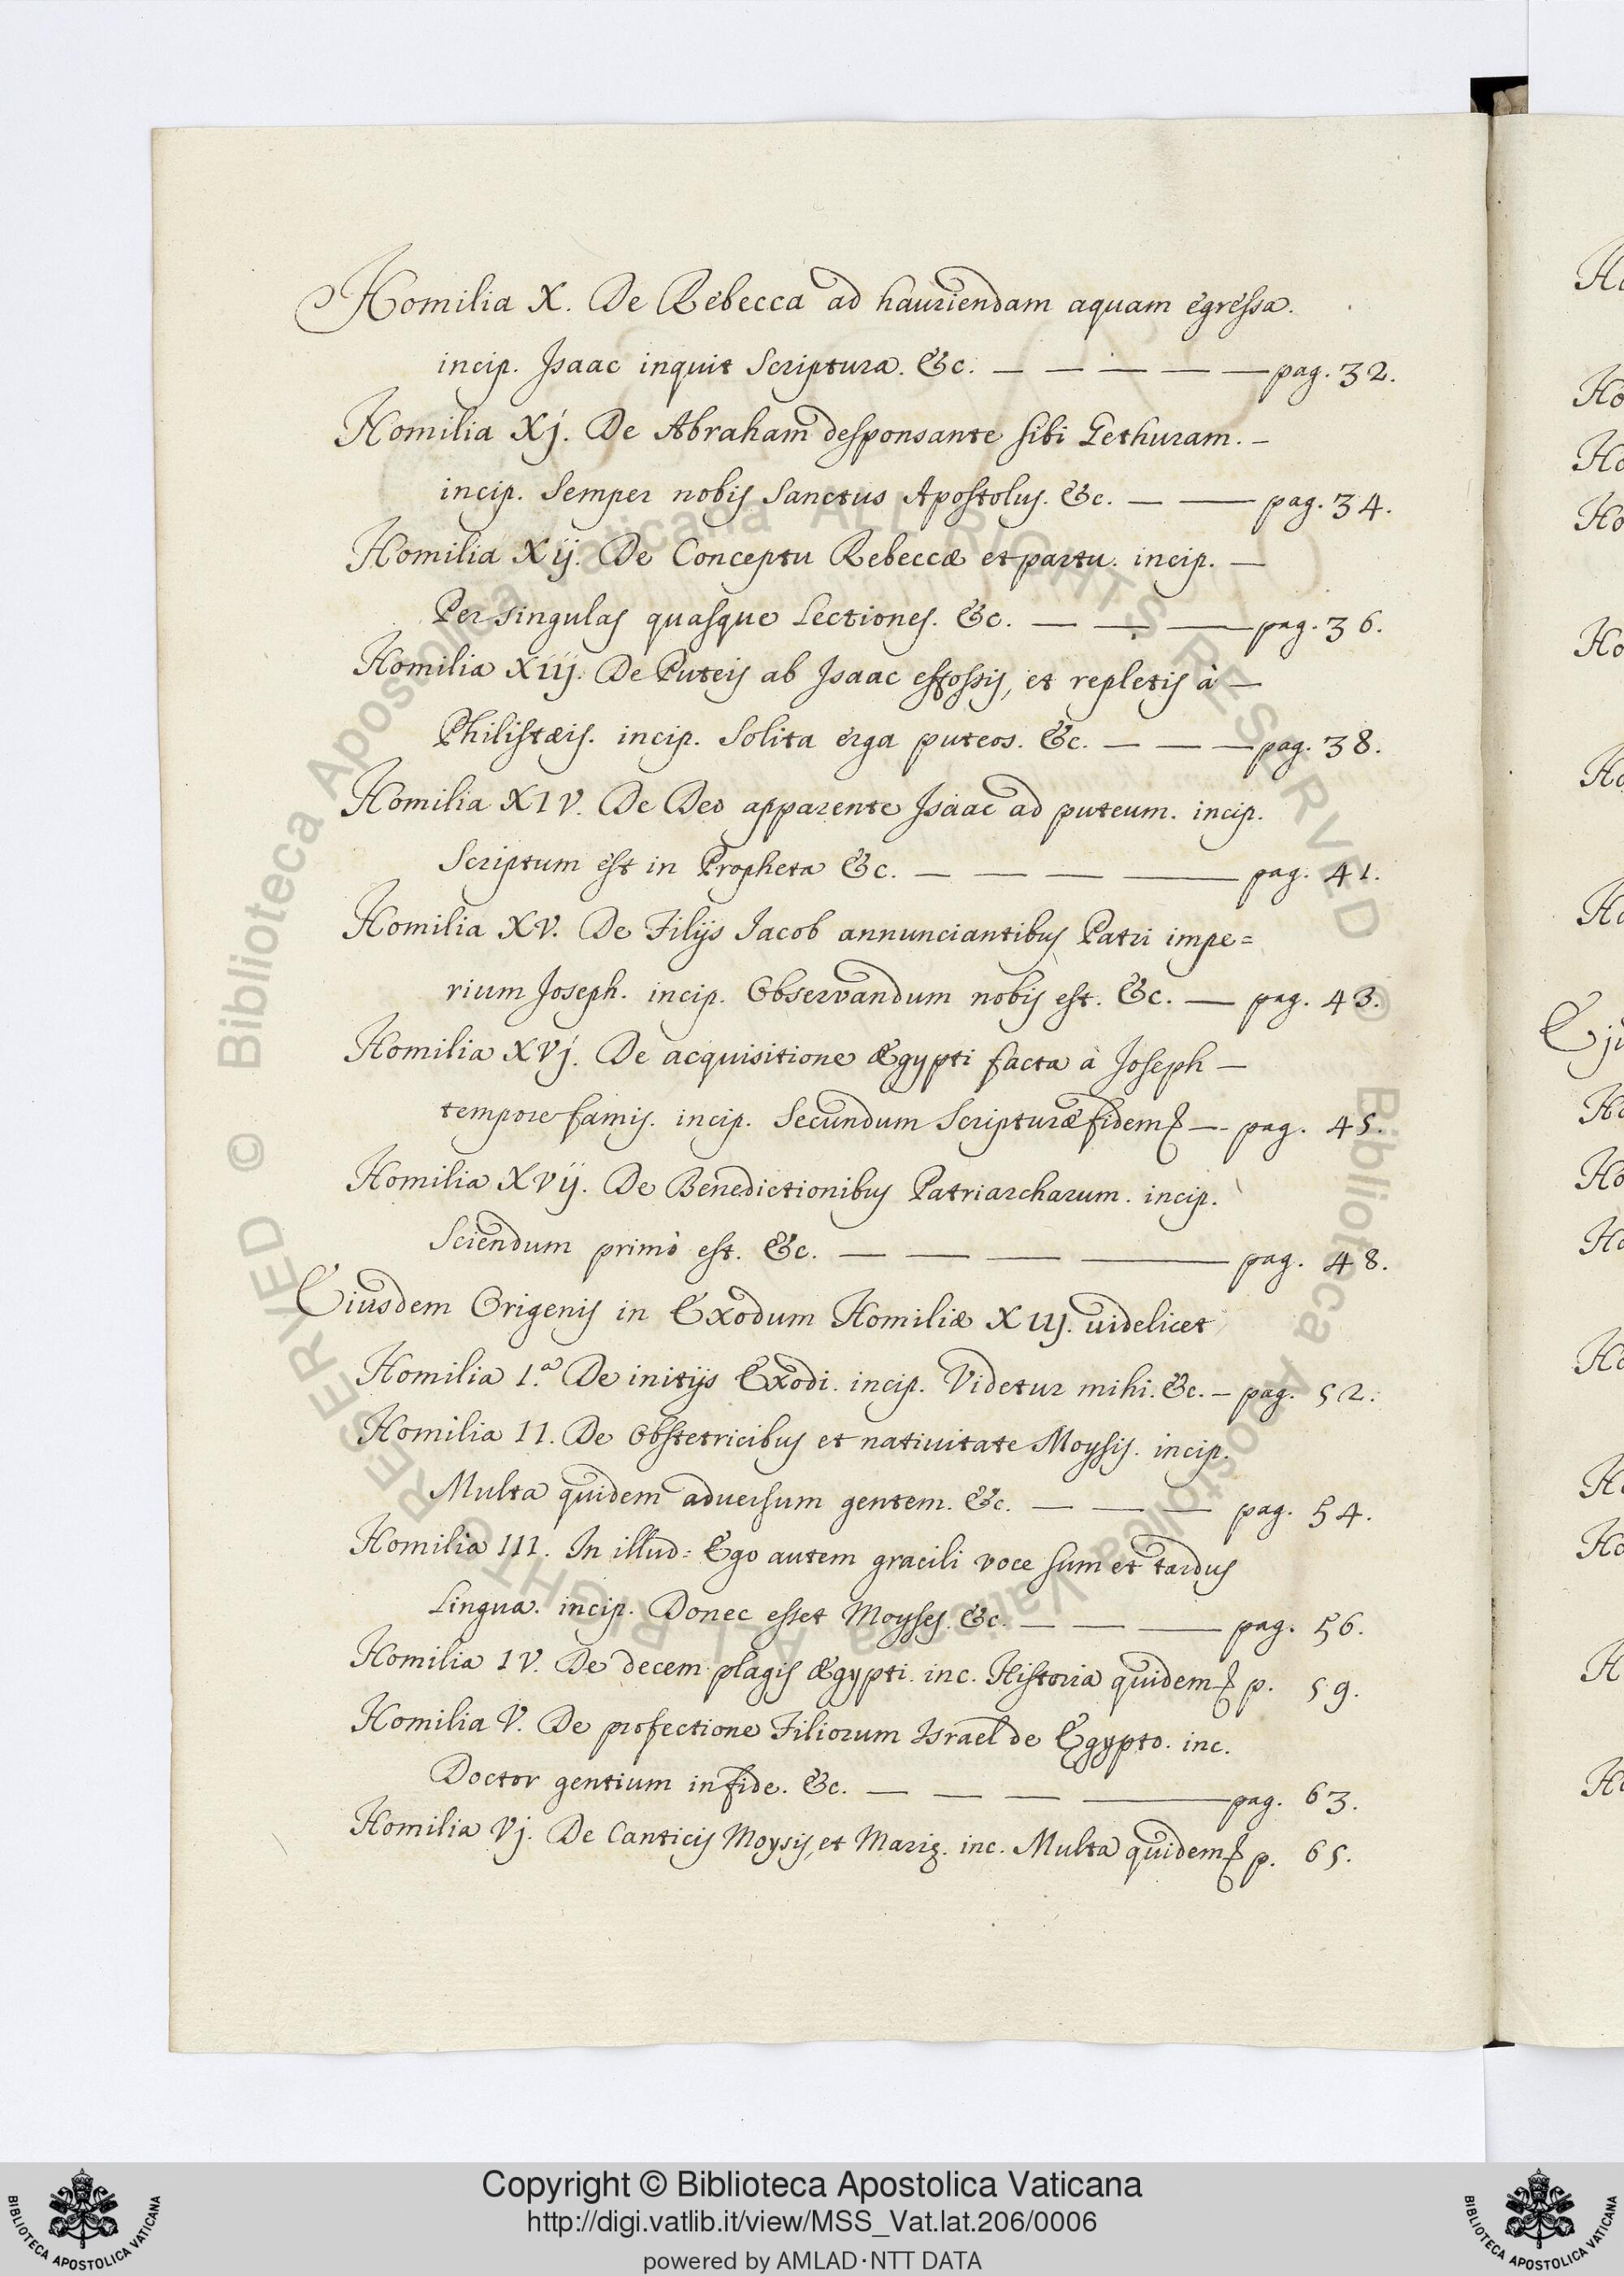 Homilia X. De Rebecca ad hauriendam aquam egressa.
incip. Isaac inquit Scriptura. &c. — — — — — pag. 32.
Homilia Xj. De Abraham desponsante sibi Cethuram. —
incip. Semper nobis Sanctus Apostolus. &c. — — pag. 34.
Homilia Xij. De Conceptu Rebeccæ et partu. incip. —
Per singulas quasque Lectiones. &c. — — — pag. 36.
Homilia Xiij. De Puteis ab Isaac effossis, et repletis à —
Philistæis. incip. Solita erga puteos. &c. — — — pag. 38.
Homilia XIV. De Deo apparente Isaac ad puteum. incip.
Scriptum est in Propheta &c. — — — — pag. 41.
Homilia XV. De Filijs Iacob annunciantibus Patri impe=
rium Joseph. incip. Observandum nobis est. &c. — pag. 43.
Homilia XVj. De acquisitione Ægypti facta à Joseph —
tempore famis. incip. Secundum Scripturæ fidem & — pag. 45.
Homilia XVij. De Benedictionibus Patriarcharum. incip.
Sciendum primò est. &c. — — — — pag. 48.
Eiusdem Origenis in Exodum Homiliæ Xiij. uidelicet
Homilia 1.a De initijs Exodi. incip. Videtur mihi. &c. — pag. 52.
Homilia II. De Obstetricibus et natiuitate Moysis. incip.
Multa quidem aduersum gentem. &c. — — — pag. 54.
Homilia III. In illud: Ego autem gracili voce sum et tardus
Lingua. incip. Donec esset Moyses. &c. — — — pag. 56.
Homilia IV. De decem plagis Ægypti. inc. Historia quidem & p. 59.
Homilia V. De profectione Filiorum Israel de Egypto. inc.
Doctor gentium in fide. &c. — — — — pag. 63.
Homilia Vj. De Canticis Moysis, et Marię. inc. Multa quidem & p. 65.
© Biblioteca Apostolica Vaticana ALL RIGHTS RESERVED © Biblioteca Apostolica Vaticana ALL RIGHTS RESERVED
Copyright © Biblioteca Apostolica Vaticana
http://digi.vatlib.it/view/MSS_Vat.lat.206/0006
powered by AMLAD·NTT DATA
BIBLIOTECA APOSTOLICA VATICANA
BIBLIOTECA APOSTOLICA VATICANA